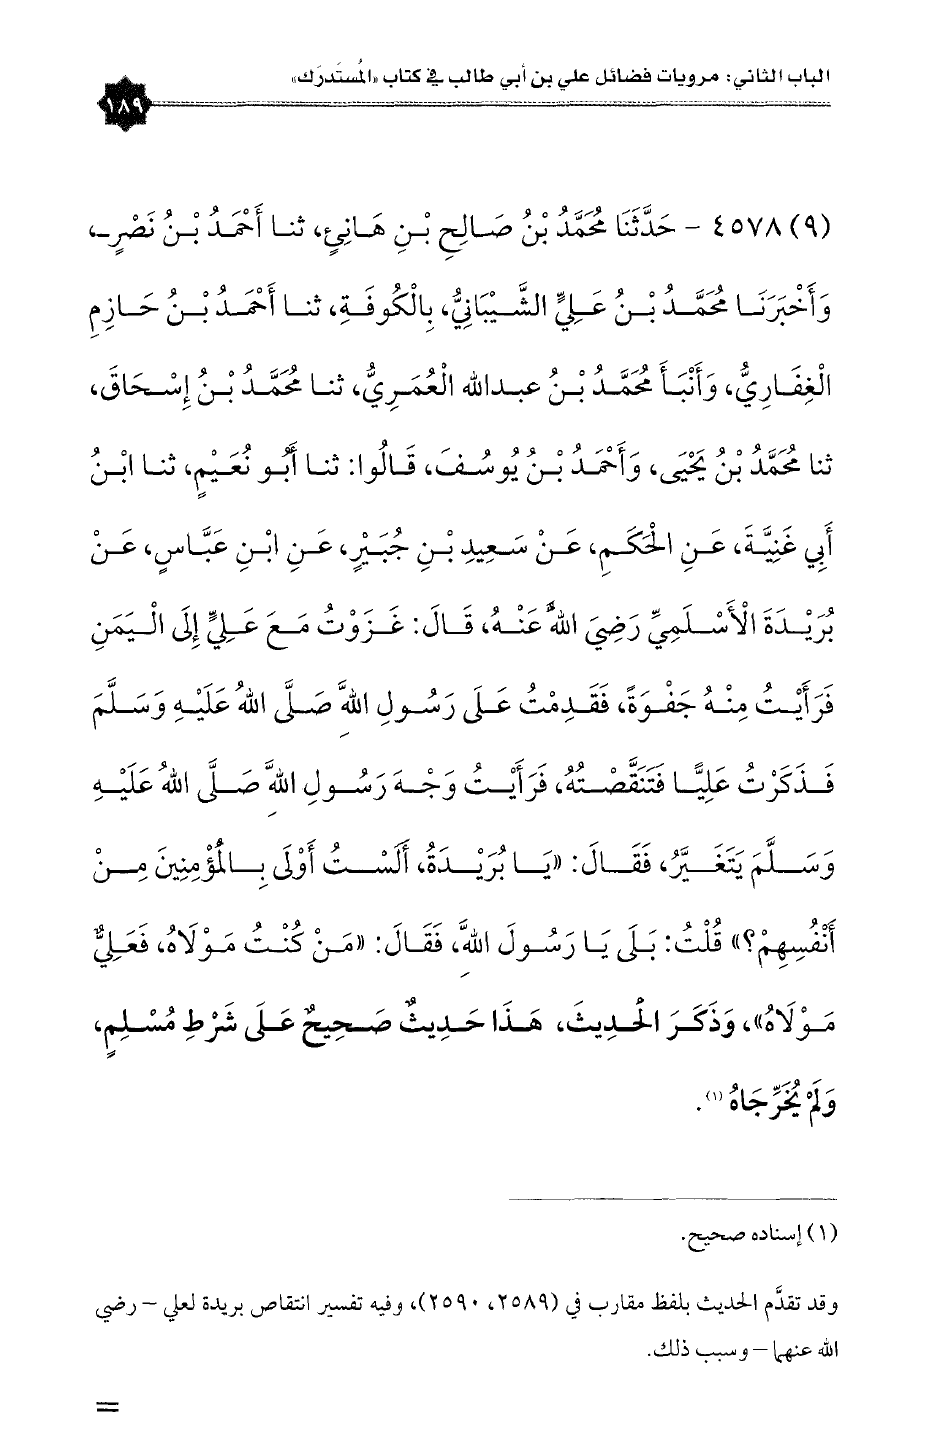 الباب الثاني: مرويات فضائل علي بن أبي طالب في كتاب «المُستَدرَك»
١٨٩
(٩) ٤٥٧٨ - حَدَّثَنَا مُحَمَّدُ بْنُ صَالِحِ بْنِ هَانِئٍ، ثنا أَحْمَدُ بْنُ نَصْرٍ،
وَأَخْبَرَنَا مُحَمَّدُ بْنُ عَلِيٍّ الشَّيْبَانِيُّ، بِالْكُوفَةِ، ثنا أَحْمَدُ بْنُ حَازِمٍ
الْغِفَارِيُّ، وَأَنْبَأَ مُحَمَّدُ بْنُ عبدالله الْعُمَرِيُّ، ثنا مُحَمَّدُ بْنُ إِسْحَاقَ،
ثنا مُحَمَّدُ بْنُ يَحْيَى، وَأَحْمَدُ بْنُ يُوسُفَ، قَالُوا: ثنا أَبُو نُعَيْمٍ، ثنا ابْنُ
أَبِي غَنِيَّةَ، عَنِ الْحَكَمِ، عَنْ سَعِيدِ بْنِ جُبَيْرٍ، عَنِ ابْنِ عَبَّاسٍ، عَنْ
بُرَيْدَةَ الْأَسْلَمِيِّ رَضِيَ اللهُ عَنْهُ، قَالَ: غَزَوْتُ مَعَ عَلِيٍّ إِلَى الْيَمَنِ
فَرَأَيْتُ مِنْهُ جَفْوَةً، فَقَدِمْتُ عَلَى رَسُولِ اللهِ صَلَّى اللهُ عَلَيْهِ وَسَلَّمَ
فَذَكَرْتُ عَلِيًّا فَتَنَقَّصْتُهُ، فَرَأَيْتُ وَجْهَ رَسُولِ اللهِ صَلَّى اللهُ عَلَيْهِ
وَسَلَّمَ يَتَغَيَّرُ، فَقَالَ: «يَا بُرَيْدَةُ، أَلَسْتُ أَوْلَى بِالْمُؤْمِنِينَ مِنْ
أَنْفُسِهِمْ؟» قُلْتُ: بَلَى يَا رَسُولَ اللهِ، فَقَالَ: «مَنْ كُنْتُ مَوْلَاهُ، فَعَلِيٌّ
مَوْلَاهُ»، وَذَكَرَ الْحَدِيثَ، هَذَا حَدِيثٌ صَحِيحٌ عَلَى شَرْطِ مُسْلِمٍ،
وَلَمْ يُخَرِّجَاهُ (١).
(١) إسناده صحيح.
وقد تقدَّم الحديث بلفظ مقارب في (٢٥٨٩، ٢٥٩٠)، وفيه تفسير انتقاص بريدة لعلي – رضي
الله عنهما – وسبب ذلك.
=